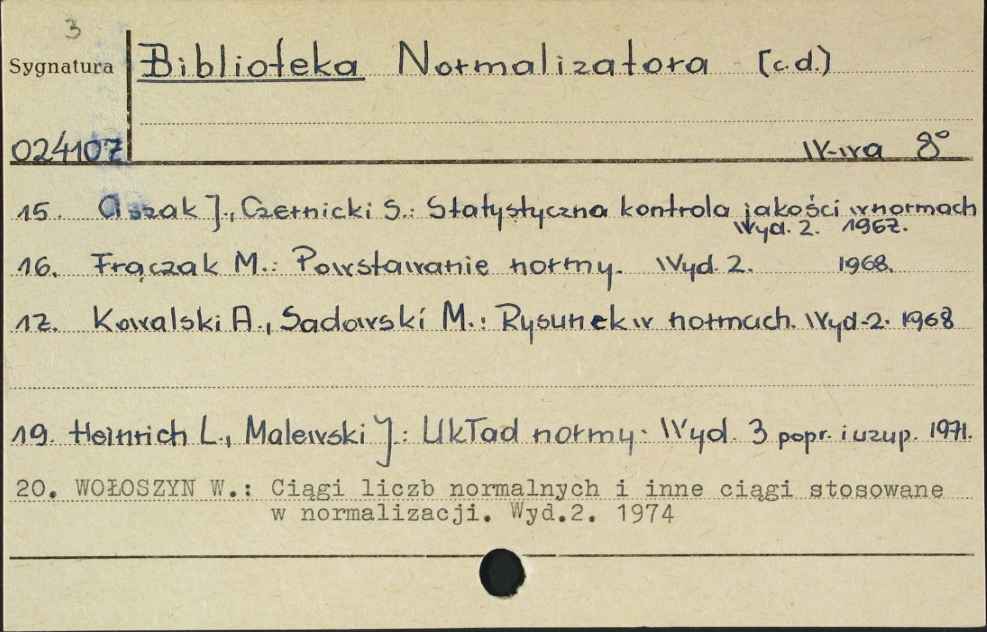 3
Sygnatura Biblioteka Normalizatora (c.d.)
024107 W-wa 8°
15. Ciszak J., Czernicki S.: Statystyczna kontrola jakości w normach
Wyd. 2. 1967.
16. Frączak M.: Powstawanie normy. Wyd. 2. 1968.
17. Kowalski A., Sadowski M.: Rysunek w normach. Wyd. 2. 1968
19. Heinrich L., Malewski J.: Układ normy. Wyd. 3 popr. i uzup. 1971.
20. WOŁOSZYN W.: Ciągi liczb normalnych i inne ciągi stosowane
w normalizacji. Wyd.2. 1974